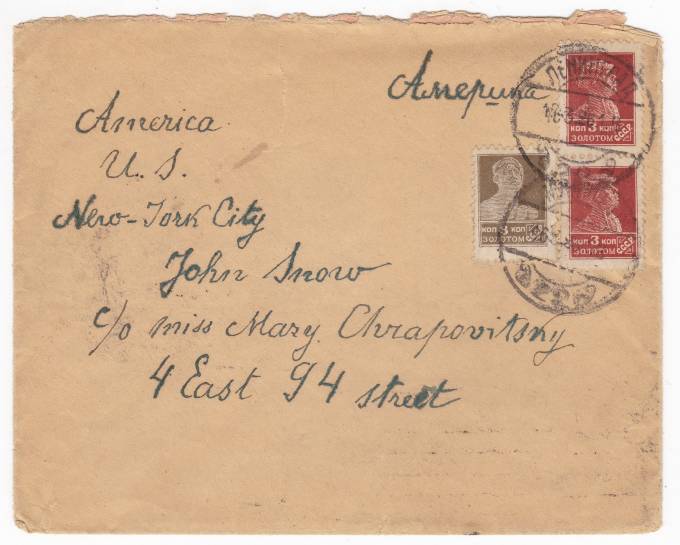 Америка
America
U. S.
New-York City
John Snow
c/o miss Mary Chrapovitsky
4 East 94 street
КОП 3 КОП
ЗОЛОТОМ
СССР
КОП 8 КОП
ЗОЛОТОМ
КОП 3 КОП
ЗОЛОТОМ
СССР